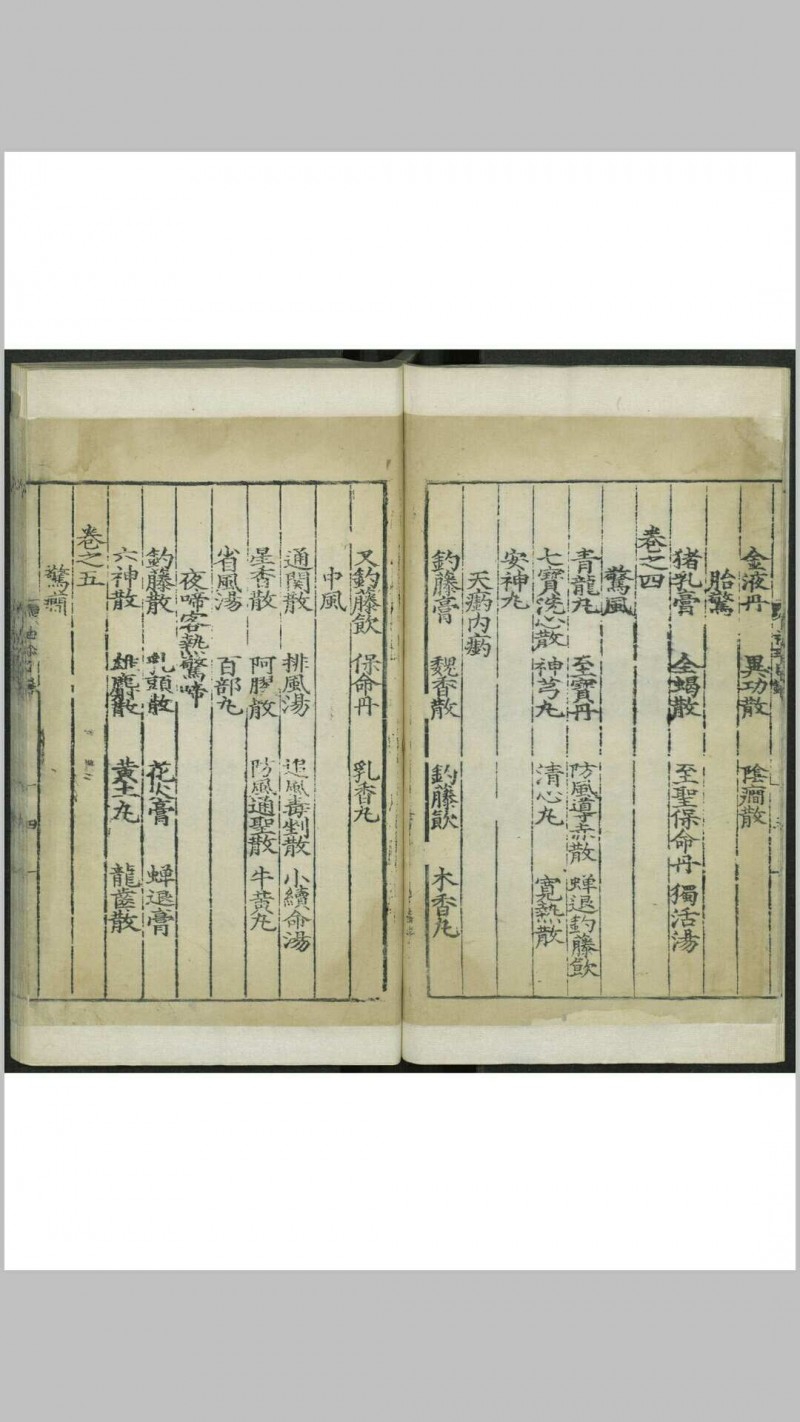 金液丹 異功散 陰癇散
胎驚
猪乳膏 全蝎散 至聖保命丹 獨活湯
卷之四
驚風
青龍丸 至寶丹 防風導赤散 蟬退釣藤飲
七寶洗心散 神芎丸 清心丸 寛熱散
安神丸
天瘹内瘹
釣藤膏 魏香散 釣藤飲 木香丸
又釣藤飲 保命丹 乳香丸
中風
通関散 排風湯 追風毒剉散 小續命湯
星香散 阿膠散 防風通聖散 牛黄丸
省風湯 百部丸
夜啼客熱驚啼
釣藤散 乳頭散 花火膏 蟬退膏
六神散 雄麝散 黄土丸 龍齒散
卷之五
驚癇